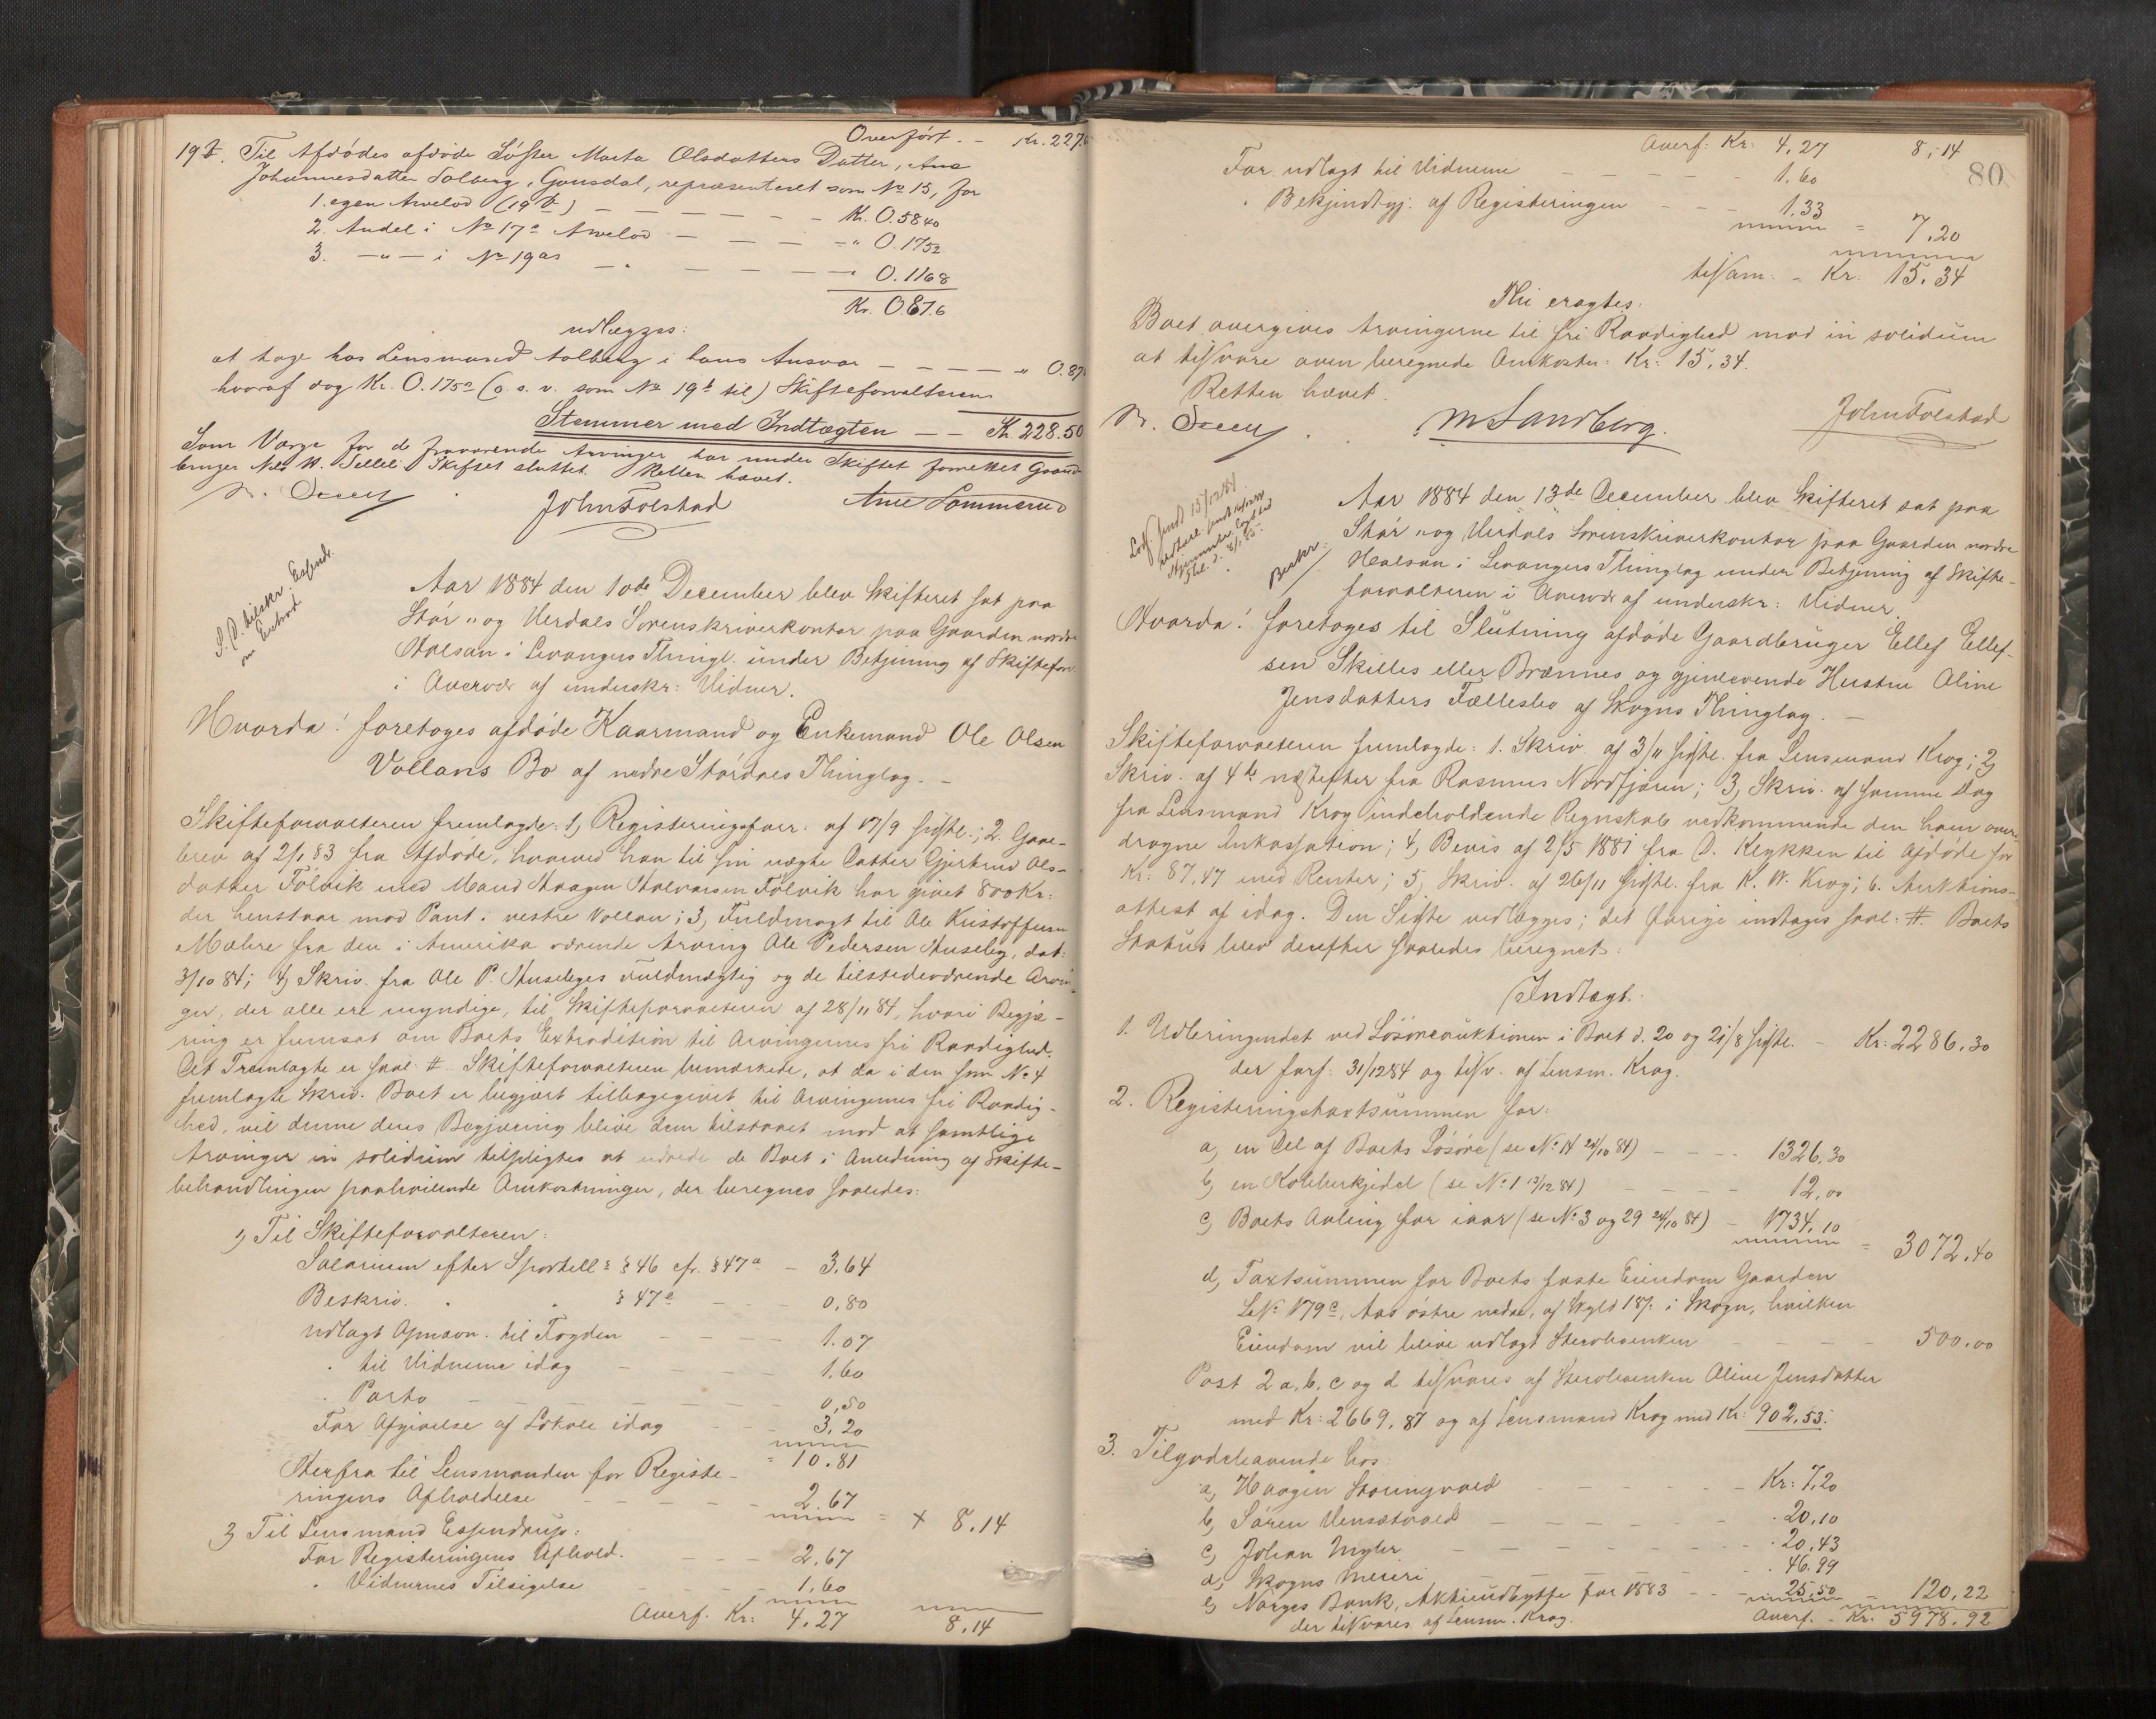 Overført. - Kr. 227.
19 b. Til Afdødes afdøde Søster Marta Olsdatters Datter, Ane
Johannesdatter Solberg, Gousdal, repræsenteret som No 15, for
1. egen Arvelod (19 b) - - - - Kr. 0.5840
2. Andel i No 17 a Arvelod - - - - " 0.1752
3. - " - i No 19 as - - - - " 0.1168
Kr. 0.876
udlægges:
at tage hos Lensmand Solberg i hans Ansvar - - - - " 0.87
hvoraf dog Kr. 0.1752 (o. s. v. som No 19 b til) Skifteforvalteren
Stemmer med Indtægten - - Kr. 228.50
Som Værge for de fraværende Arvinger har under Skiftet forrettet Gaard-
bruger Nils W. Skiftet sluttet. Retten hævet.
John Folstad
S. D. tilskr. Essendr.
om Extrad.
Aar 1884 den 10de December blev Skifteret sat paa
Stør- og Verdals Sorenskriverkontor paa Gaarden nordre
Halsan i Levangers Thingl. under Betjening af Skiftefor.
i Overvær af underskr: Vidner.
Hvorda! foretoges afdøde Kaarmand og Enkemand Ole Olsen
Vollans Bo af nedre Størdøls Thinglag. -
Skifteforvalteren fremlagde: 1, Registeringsforr. af 17/9 sidstl.; 2. Gave-
brev af 2/1 83 fra Afdøde, hvorved han til sin uægte Datter Gjertrud Ols-
datter Følvik med Mand Haagen Halvorsen Følvik har givet 800 Kr:
der henstaar mod Pant i vestre Vollan; 3, Fuldmagt til Ole Kristoffersen
Mæhre fra den i Amerika værende Arving Ole Pedersen Huseby, dat:
3/10 84; 4, Skriv. fra Ole P. Husebyes Fuldmægtig og de tilstedeværende Arvin-
ger, der alle ere myndige, til Skifteforvalteren af 28/11 84, hvori Begjæ-
ring er fremsat om Boets Extradition til Arvingernes fri Raadighed.
Det Fremlagte er saal: #. Skifteforvalteren bemærkede, at da i den som No 4
fremlagte Skriv. Boet er begjært tilbagegivet til Arvingernes fri Raadig-
hed, vil denne deres Begjæring blive dem tilstaaet mod at samtlige
Arvinger in solidum tilpligtes at udrede de Boet i Anledning af Skifte-
behandlingen paahvilende Omkostninger, der beregnes saaledes:
1, Til Skifteforvalteren:
Salarium efter Sportell: § 46 cfr. § 47 a - 3.64
Beskriv. " " § 47 e - - 0,80
Udlagt Opnavn. til Fogden - - - 1.07
" til Vidnerne idag - - - 1,60
" Porto - - - 0,50
For Afgivelse af Lokale idag - - 3,20
= 10.81
Herfra til Lensmanden for Registe-
ringens Afholdelse - - - 2.67
= + 8.14
2, Til Lensmand Essendrup:
For Registeringens Afhold. - - - 2.67
" Vidnernes Tilsigelse - - - 1,60
Overf. Kr: 4.27 8.14
Overf: Kr: 4.27 8,14
80
For udlagt til Vidnerne - - - - 1.60
" Bekjendtgj: af Registeringen - - - 1.33
= 7.20
tilsam: - Kr. 15.34
Thi eragtes:
Boet overgives Arvingerne til fri Raadighed mod in solidum
at tilsvare oven beregnede Omkostn: Kr: 15.34.
Retten hævet.
M Sandberg.
John Folstad
Beskr:
Aar 1884 den 13de December blev Skifteret sat paa
Stør- og Verdals Sorenskriverkontor paa Gaarden nordre
Halsan i Levangers Thinglag under Betjening af Skifte-
forvalteren i Overvær af underskr: Vidner.
Hvorda! foretoges til Slutning afdøde Gaardbruger Ellef Ellef-
sen Skilles eller Brænnes og gjenlevende Hustru Oline
Jensdatters Fællesbo af Skogns Thinglag. -
Skifteforvalteren fremlagde: 1. Skriv. af 3/11 sidstl. fra Lensmand Krog; 2,
Skriv. af 4de næstefter fra Rasmus Nordfjæren; 3, Skriv. af samme Dag
fra Lensmand Krog indeholdende Regnskab vedkommende den ham over-
dragne Inkassation; 4, Bevis af 2/5 1881 fra O. Klykken til Afdøde for
Kr: 87,47 med Renter; 5, Skriv. af 26/11 sidstl. fra K. W. Krog; 6. Auktions-
attest af idag. Den Sidste vedlægges; det Øvrige indtages saal: #. Boets
Status blev derefter saaledes beregnet:
Indtægt:
1. Udbringendet ved Løsøreauktionen i Boet d. 20 og 21/8 sidstl. - Kr: 2286.30
der forf: 31/12 84 og tilsv. af Lensm. Krog.
2. Registeringstaxtsummen for:
a, en Del af Boets Løsøre (se No 14 24/10 84) - - - 1326,30
b, en Kobberkjedel (se No 1 13/12 84) - - - 12,00
c, Boets Avling for iaar (se No 3 og 29 24/10 84) - 1734,10
= 3072.40
d, Taxtsummen for Boets faste Eiendom Gaarden
LNo 179 c, Aas østre nedre, af Skyld 18ß. i Skogn, hvilken
Eiendom vil blive udlagt Sterboenken - - - - 500.00
Post 2 a, b, c og d tilsvares af Sterboenken Oline Jensdatter
med Kr: 2669,87 og af Lensmand Krog med Kr: 902,53.
3. Tilgodehavende hos:
a, Haagen - - - - Kr: 7,20
b, Søren - - - - " 20,10
c, Johan Myhr - - - - " 20,43
d, Skogns Meieri - - - - " 46.99
e, Norges Bank, Aktieudbytte for 1883 - - - 25,50 = 120,22
der tilsvares af Lensm. Krog. Overf. - Kr: 5978.92